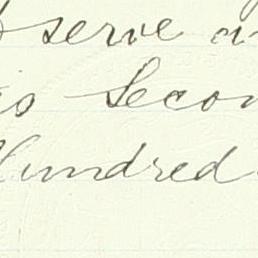 serve
is Secon
Hundred